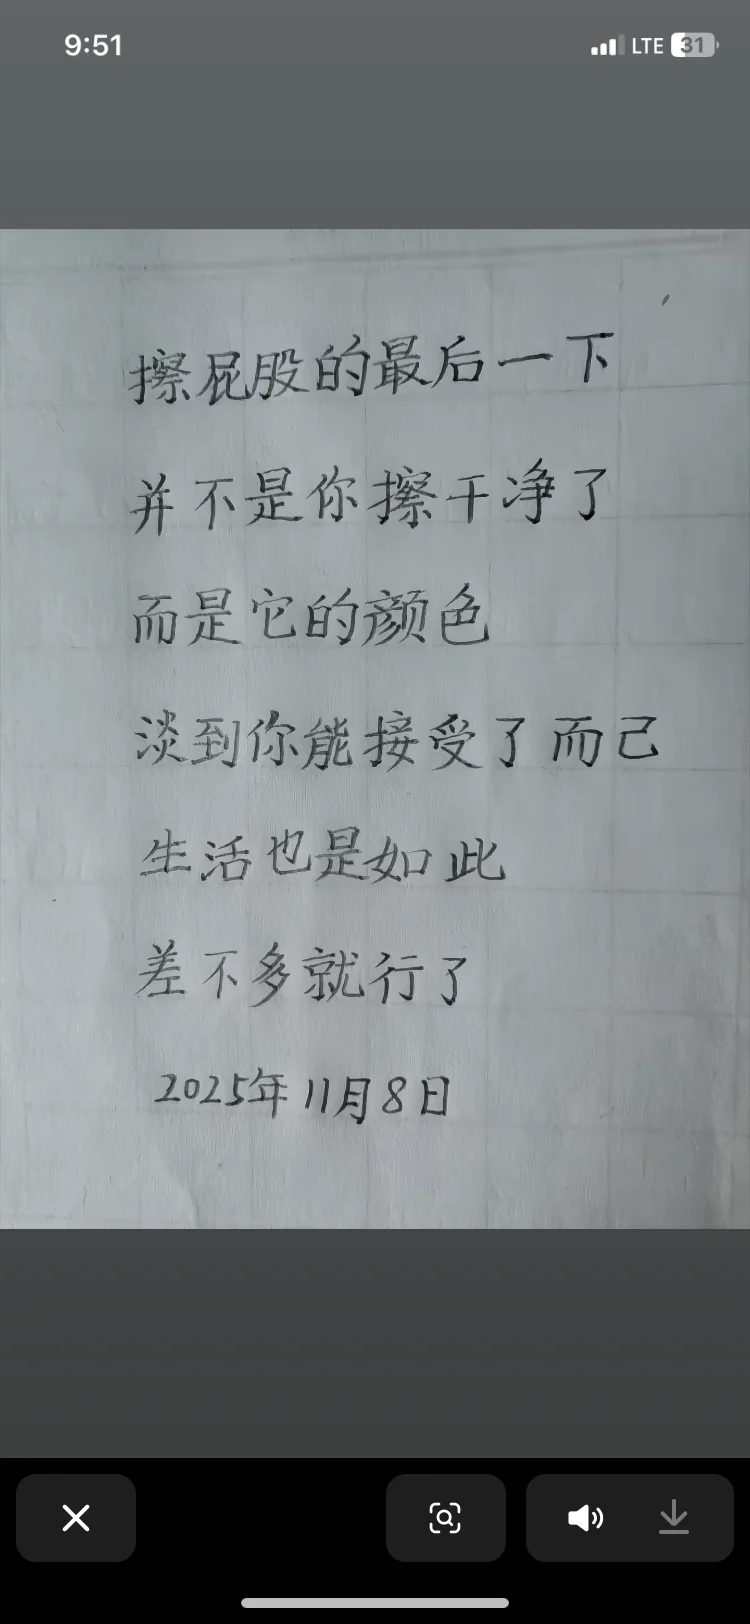 9:51 LTE 31
擦屁股的最后一下
并不是你擦干净了
而是它的颜色
淡到你能接受了而己
生活也是如此
差不多就行了
2025年11月8日